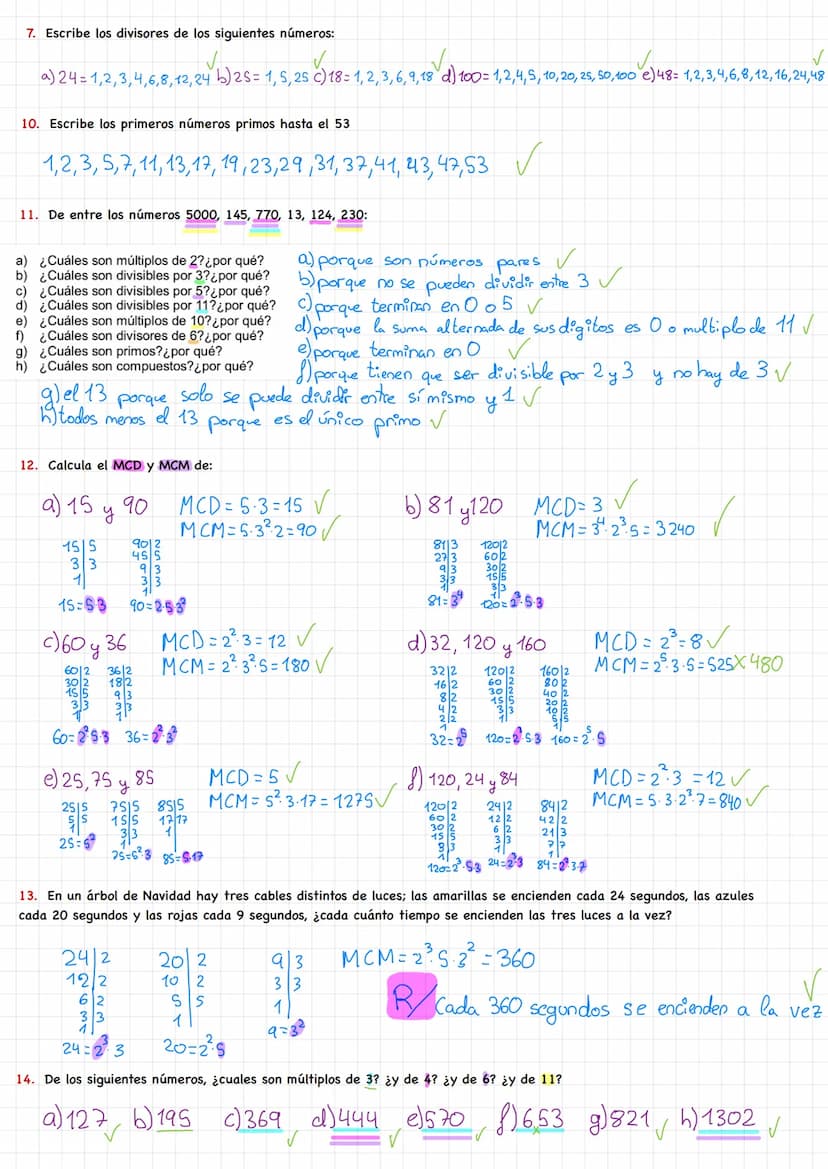 7. Escribe los divisores de los siguientes números:
a) 24 = 1,2,3,4,6,8,12,24 ✓ b) 25 = 1,5,25 ✓ c) 18 = 1,2,3,6,9,18 ✓ d) 100 = 1,2,4,5,10,20,25,50,100 ✓ e) 48 = 1,2,3,4,6,8,12,16,24,48 ✓
10. Escribe los primeros números primos hasta el 53
1,2,3,5,7,11,13,17,19,23,29,31,37,41,43,47,53 ✓
11. De entre los números 5000, 145, 770, 13, 124, 230:
a) ¿Cuáles son múltiplos de 2?¿por qué?
b) ¿Cuáles son divisibles por 3?¿por qué?
c) ¿Cuáles son divisibles por 5?¿por qué?
d) ¿Cuáles son divisibles por 11?¿por qué?
e) ¿Cuáles son múltiplos de 10?¿por qué?
f) ¿Cuáles son divisores de 6?¿por qué?
g) ¿Cuáles son primos?¿por qué?
h) ¿Cuáles son compuestos?¿por qué?
a) porque son números pares ✓
b) porque no se pueden dividir entre 3 ✓
c) porque terminan en 0 o 5 ✓
d) porque la suma alternada de sus dígitos es 0 o multiplo de 11 ✓
e) porque terminan en 0 ✓
f) porque tienen que ser divisible por 2 y 3 y no hay de 3 ✓
g) el 13 porque solo se puede dividir entre sí mismo y 1 ✓
h) todos menos el 13 porque es el único primo ✓
12. Calcula el MCD y MCM de:
a) 15 y 90 MCD = 5·3 = 15 ✓
MCM = 5·3²·2 = 90 ✓
15|5 90|2
3|3 45|5
1| 9|3
3|3
1|
15 = 5·3 90 = 2·5·3²
b) 81 y 120 MCD = 3 ✓
MCM = 3⁴·2³·5 = 3240 ✓
81|3 120|2
27|3 60|2
9|3 30|2
3|3 15|5
1| 3|3
1|
81 = 3⁴ 120 = 2³·5·3
c) 60 y 36 MCD = 2²·3 = 12 ✓
MCM = 2²·3²·5 = 180 ✓
60|2 36|2
30|2 18|2
15|5 9|3
3|3 3|3
1| 1|
60 = 2²·5·3 36 = 2²·3²
d) 32, 120 y 160 MCD = 2³ = 8 ✓
MCM = 2⁵·3·5 = 525 X 480
32|2 120|2 160|2
16|2 60|2 80|2
8|2 30|2 40|2
4|2 15|5 20|2
2|2 3|3 10|2
1| 1| 5|5
1|
32 = 2⁵ 120 = 2³·5·3 160 = 2⁵·5
e) 25, 75 y 85 MCD = 5 ✓
MCM = 5²·3·17 = 1275 ✓
25|5 75|5 85|5
5|5 15|5 17|17
1| 3|3 1|
1|
25 = 5² 75 = 5²·3 85 = 5·17
f) 120, 24 y 84 MCD = 2²·3 = 12 ✓
MCM = 5·3·2³·7 = 840 ✓
120|2 24|2 84|2
60|2 12|2 42|2
30|2 6|2 21|3
15|5 3|3 7|7
3|3 1| 1|
1|
120 = 2³·5·3 24 = 2³·3 84 = 2²·3·7
13. En un árbol de Navidad hay tres cables distintos de luces; las amarillas se encienden cada 24 segundos, las azules
cada 20 segundos y las rojas cada 9 segundos, ¿cada cuánto tiempo se encienden las tres luces a la vez?
24|2 20|2 9|3 MCM = 2³·5·3² = 360
12|2 10|2 3|3
6|2 5|5 1|
3|3 1|
1|
24 = 2³·3 20 = 2²·5 9 = 3²
R/ Cada 360 segundos se encienden a la vez ✓
14. De los siguientes números, ¿cuales son múltiplos de 3? ¿y de 4? ¿y de 6? ¿y de 11?
a) 127 ✓ b) 195 c) 369 ✓ d) 444 ✓ e) 570 ✓ f) 653 x g) 821 ✓ h) 1302 ✓